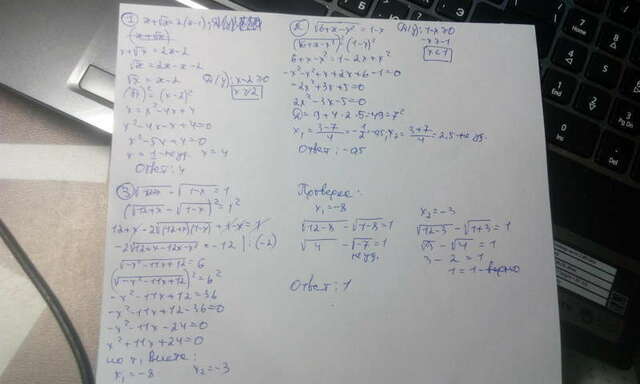 ① x+√x=2(x-1);
x+√x=2x-2
√x=2x-x-2
√x=x-2 О/у: x-2≥0
(√x)²=(x-2)² x≥2
x=x²-4x+4
x²-4x-x+4=0
x²-5x+4=0
x=1-не уд. x=4
Ответ: 4
② √6+x-x²=1-x О/у: 1-x≥0
(√6+x-x²)²=(1-x)² -x≥-1
6+x-x²=1-2x+x² x≤1
-x²-x²+x+2x+6-1=0
-2x²+3x+5=0
2x²-3x-5=0
D=9+4·2·5=49=7²
③ √12+x - √1-x=1
(√12+x - √1-x)²=1²
12+x-2√(12+x)(1-x)+1-x=1
-2√12+x-12x-x²=-12 |:(-2)
√-x²-11x+12=6
(√-x²-11x+12)²=6²
-x²-11x+12=36
-x²-11x+12-36=0
-x²-11x-24=0
x²+11x+24=0
по т. Виета:
x₁=-8 x₂=-3
Проверка:
x₁=-8 x₂=-3
√12-8 - √1+8=1 √12-3 - √1+3=1
3-2=1
1=1-верно